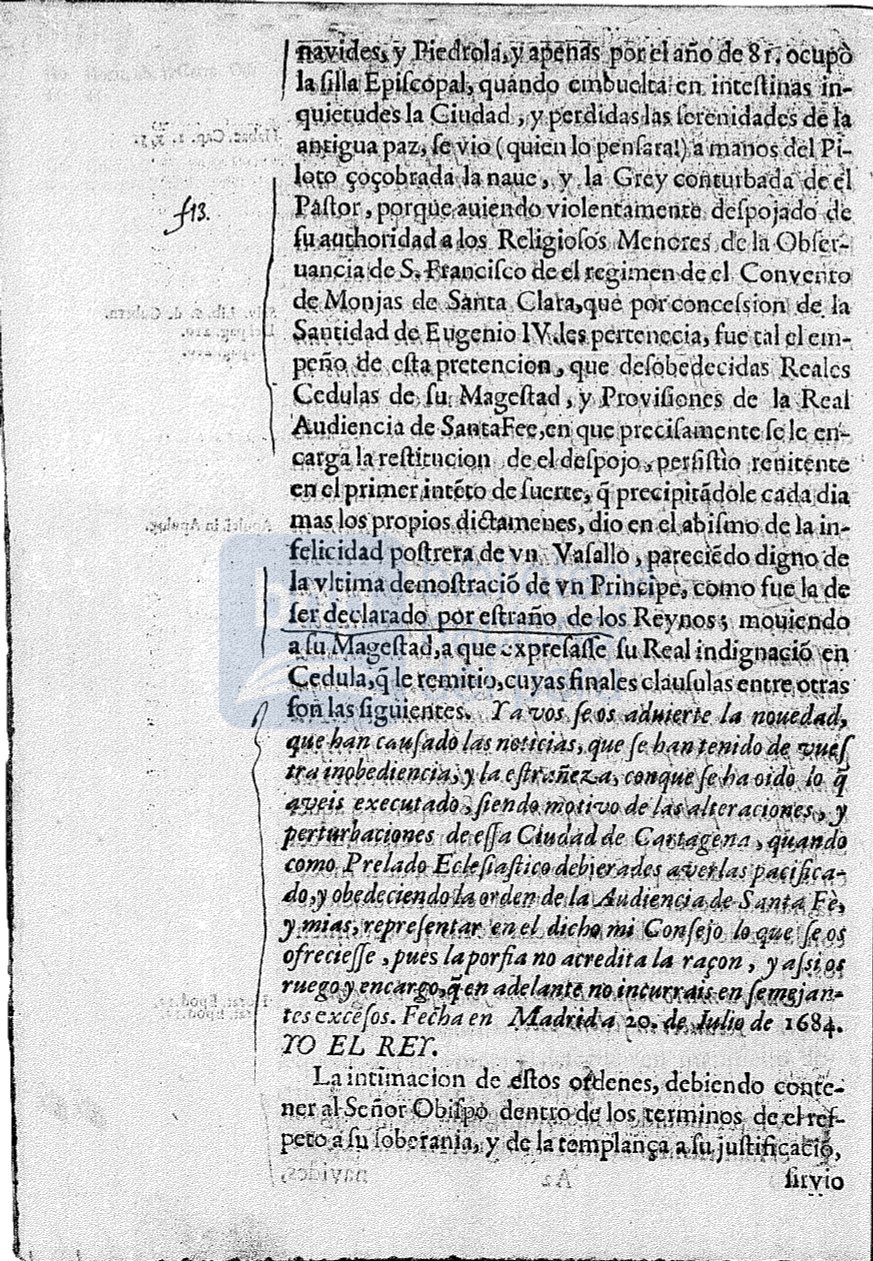 navides, y Piedrola, y apenas por el año de 81. ocupò
la silla Episcopal, quando embuelta en intestinas in-
quietudes la Ciudad, y perdidas las serenidades de la
antigua paz, se vio (quien lo pensara!) a manos del Pi-
loto çoçobrada la naue, y la Grey conturbada de el
f13.
Pastor, porque auiendo violentamente despojado de
su authoridad a los Religiosos Menores de la Obser-
uancia de S. Francisco de el regimen de el Convento
de Monjas de Santa Clara, que por concession de la
Santidad de Eugenio IV. les pertenecia, fue tal el em-
peño de esta pretencion, que desobedecidas Reales
Cedulas de su Magestad, y Provisiones de la Real
Audiencia de SantaFee, en que precisamente se le en-
carga la restitucion de el despojo, persistìo renitente
en el primer intẽto de suerte, q̃ precipitãdole cada dia
mas los propios dictamenes, dio en el abismo de la in-
felicidad postrera de vn Vasallo, pareciẽdo digno de
la vltima demostració de vn Principe, como fue la de
ser declarado por estraño de los Reynos; mouiendo
a su Magestad, a que expresasse su Real indignació en
Cedula, q̃ le remitio, cuyas finales clausulas entre otras
son las siguientes. Ya vos se os aduierte la nouedad,
que han causado las noticias, que se han tenido de vues
tra inobediencia, y la estrañeza, conque se ha oido lo q̃
aveis executado, siendo motivo de las alteraciones, y
perturbaciones de essa Ciudad de Cartagena, quando
como Prelado Eclesiastico debierades averlas pacifica-
do, y obedeciendo la orden de la Audiencia de Santa Fè,
y mias, representar en el dicho mi Consejo lo que se os
ofreciesse, pues la porfia no acredita la raçon, y assi os
ruego y encargo, q̃ en adelante no incurrais en semejan-
tes excesos. Fecha en Madrid a 20. de Iulio de 1684.
YO EL REY.
La intimacion de estos ordenes, debiendo conte-
ner al Señor Obispo dentro de los terminos de el res-
peto a su soberania, y de la templança a su justificació,
sirvio